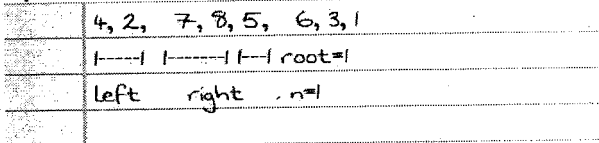 4, 2, 7, 8, 5, 6, 3, 1
|-----| |-------| |---| root=1
left right . n=1